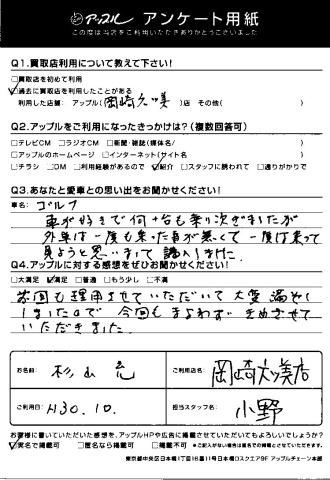 アップル アンケート用紙
この度は当店をご利用いただきありがとうございました
Q1.買取店利用について教えて下さい!
□買取店を初めて利用
☑過去に買取店を利用したことがある
利用した店舗: アップル(岡崎久美)店 その他( )
Q2.アップルをご利用になったきっかけは?(複数回答可)
□テレビCM □ラジオCM □新聞・雑誌(媒体名/ )
□アップルのホームページ □インターネット(サイト名 )
□チラシ □DM □利用経験があるので ☑紹介 □スタッフに誘われて □通りがかりで
Q3.あなたと愛車との思い出をお聞かせください!
車名: ゴルフ
車が好きで何台も乗り次ぎましたが
外車は一度も乗った事が無くて一度は乗って
見ようと思いまして購入しました。
Q4.アップルに対する感想をぜひお聞かせください!
□大満足 ☑満足 □普通 □もう少し □不満
前回も理用させていただいて大変満やく
しましたので 今回もまよわずきめさせて
いただきました。
お名前: 杉山
ご利用店名: 岡崎久美店
ご利用日: H30.10.
担当スタッフ名: 小野
お客様に書いていただいた感想を、アップルHPや広告に掲載させていただいてもよろしいでしょうか?
☑実名で掲載可 □匿名なら掲載可 □掲載不可 ※ご記入がない場合は匿名での掲載とさせていただきます。
東京都中央区日本橋1丁目16番11号日本橋Dスクエア9F アップルチェーン本部